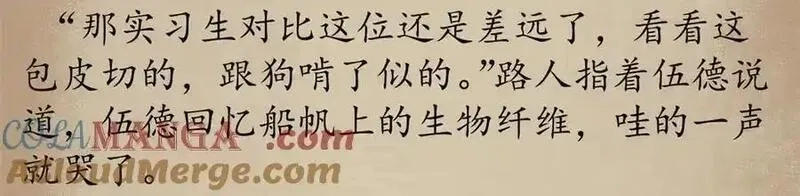 “那实习生对比这位还是差远了，看看这
包皮切的，跟狗啃了似的。”路人指着伍德说
道，伍德回忆船帆上的生物纤维，哇的一声
就哭了。
COLAMANGA.com
AllcudMerge.com